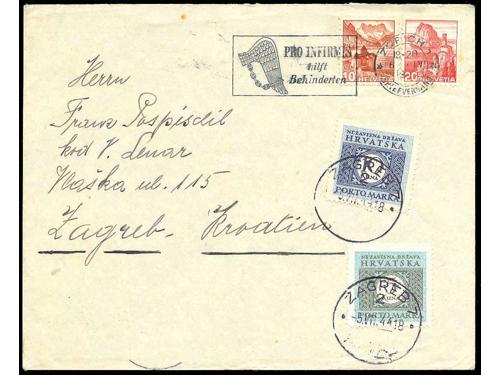 PRO INFIRMIS
hilft
Behinderten
HELVETIA
20
HELVETIA
18-20
Herrn
Franz Pospišil
kod V. Lenar
Vlaška ul. 115
Zagreb - Kroatien
NEZAVISNA DRŽAVA
HRVATSKA
KUNA
PORTO MARKA
ZAGREB
NEZAVISNA DRŽAVA
HRVATSKA
KUNA
PORTO MARKA
ZAGREB 2
-5.VII.44 18